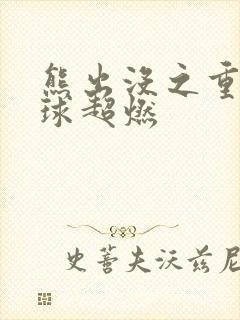 熊出没之重
球超燃
史蒈夫沃兹尼